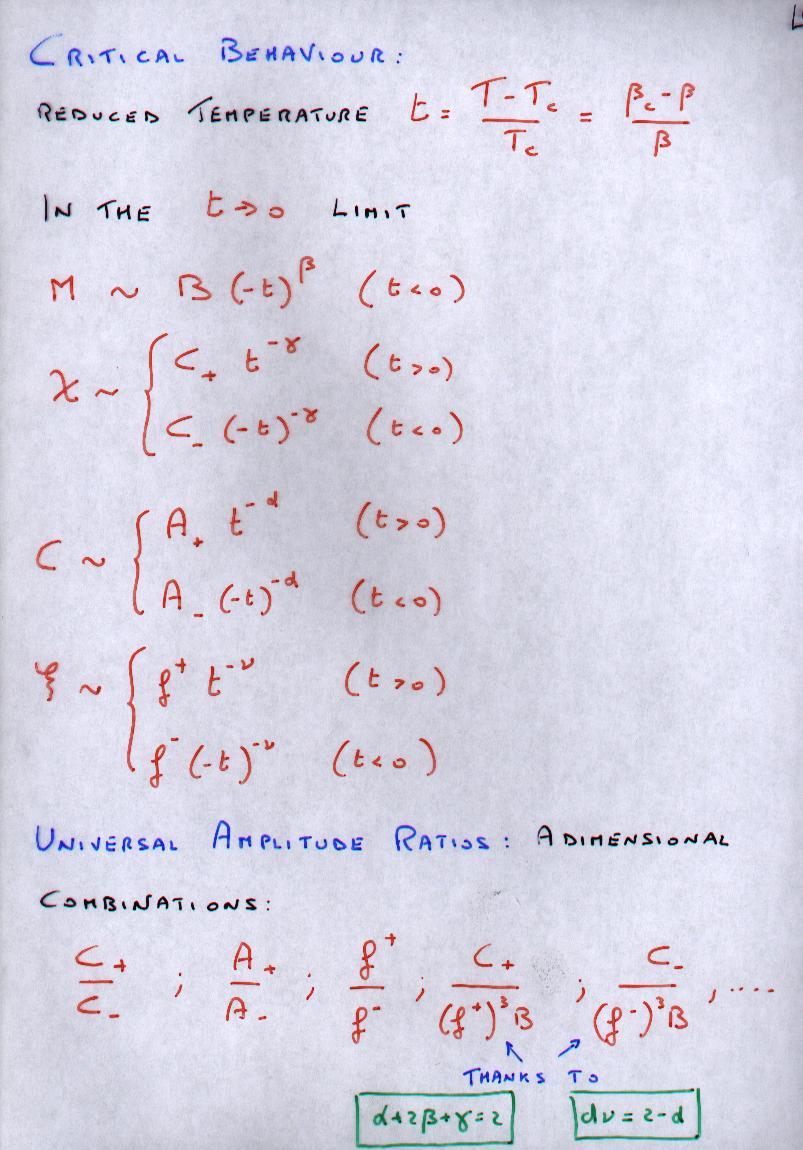 CRITICAL BEHAVIOUR:
REDUCED TEMPERATURE t = (T - Tc)/Tc = (βc - β)/β
IN THE t → 0 LIMIT
M ~ B (-t)^β (t<0)
χ ~ { C₊ t^-γ (t>0)
C₋ (-t)^-γ (t<0)
C ~ { A₊ t^-α (t>0)
A₋ (-t)^-α (t<0)
ξ ~ { f⁺ t^-ν (t>0)
f⁻ (-t)^-ν (t<0)
UNIVERSAL AMPLITUDE RATIOS: ADIMENSIONAL
COMBINATIONS:
C₊/C₋ ; A₊/A₋ ; f⁺/f⁻ ; C₊/((f⁺)³B) ; C₋/((f⁻)³B) , ....
THANKS TO
α+2β+γ=2 dν=2-α